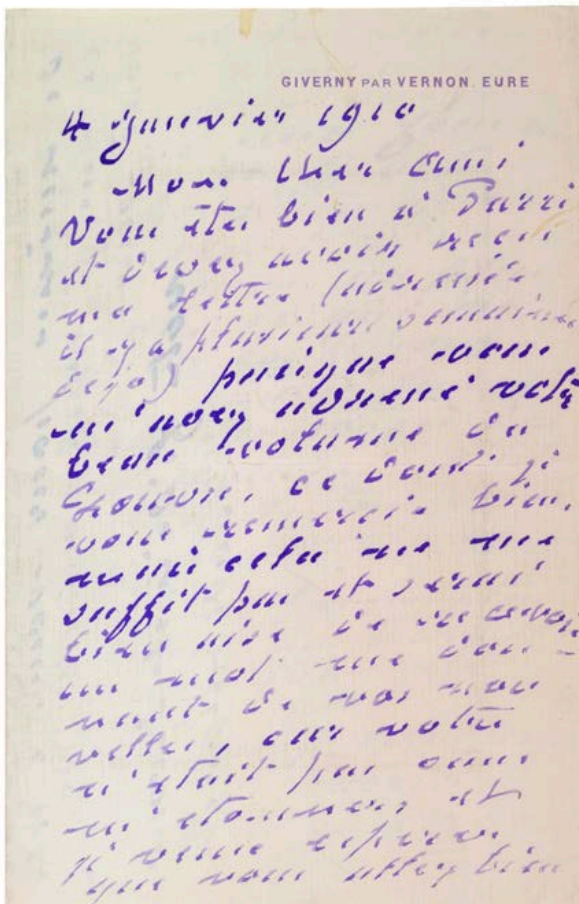 GIVERNY PAR VERNON. EURE
4 Janvier 1910
Mon cher ami
Vous êtes bien à Paris
et devez avoir reçu
ma lettre (adressée
il y a plusieurs semaines
déjà) puisque vous
m'avez adressé votre
beau volume du
ce dont je
vous remercie bien,
mais cela ne me
suffit pas et serai
bien aise de recevoir
un mot me don-
nant de vos nou
velles, car votre
n'était pas sans
m'étonner, et
je veux espérer
que vous allez bien